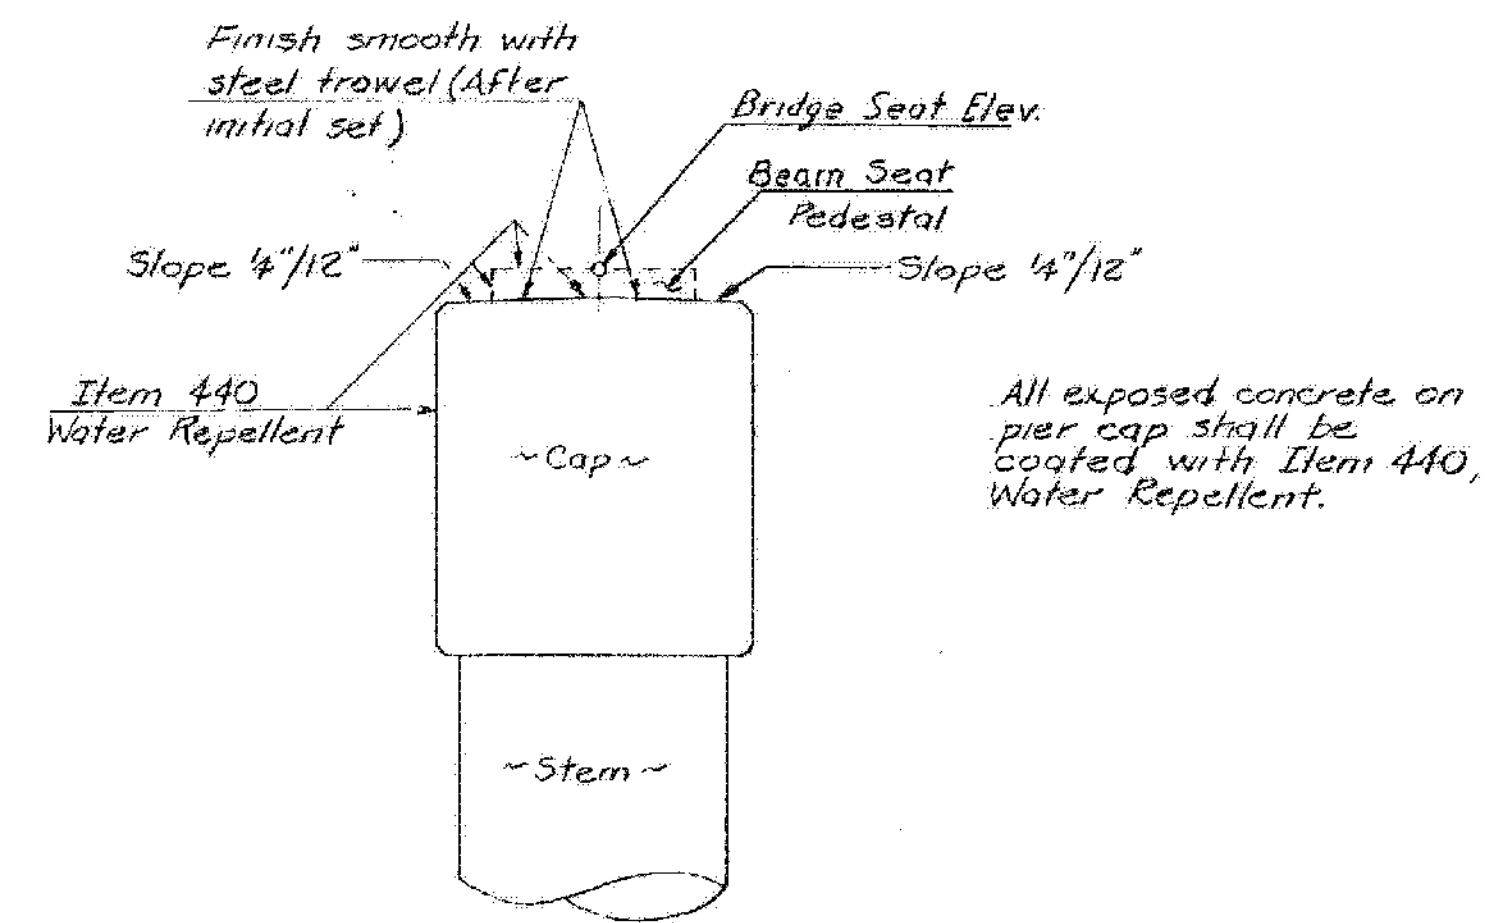 Finish smooth with
steel trowel (After
initial set)
Bridge Seat Elev.
Beam Seat
Pedestal
Slope 1/4"/12"
Slope 1/4"/12"
Item 440
Water Repellent
~Cap~
All exposed concrete on
pier cap shall be
coated with Item 440,
Water Repellent.
~Stem~